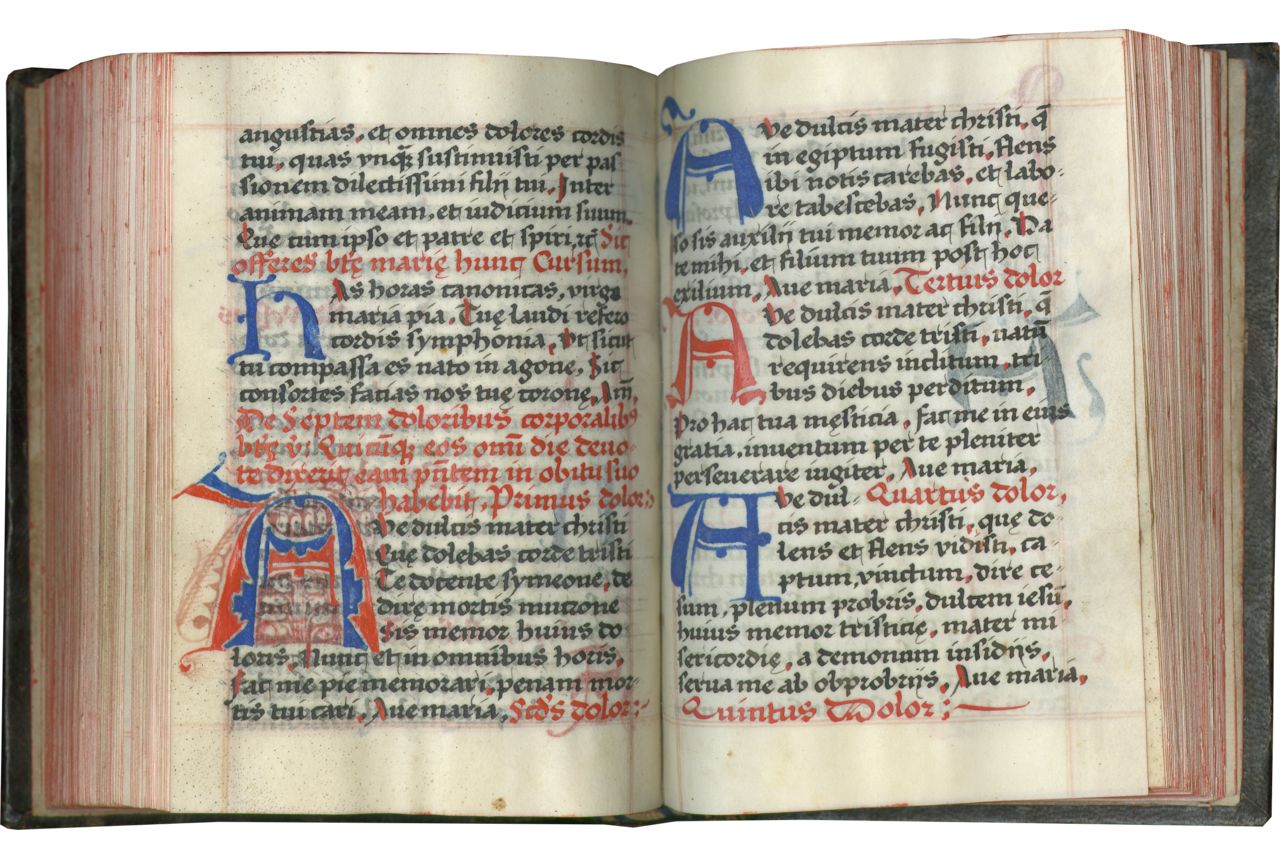 angustias, et omnes dolores cordis
tui, quas vnq̃ʒ sustinuisti per pas
sionem dilectissimi filij tui, Inter
animam meam, et iudicium suum,
Que cum ipso et patre et spiri, rc̃ Sic
offeres bt̃ę marię hunc Cursum,
HAs horas canonicas, virgo
maria pia, Tuę laudi refero
cordis symphonia, Vt sicut
tu compassa es nato in agone, Sic
consortes facias nos tuę coronę, Am̃,
De Septem doloribus corporalibꝰ
bt̃ę v̇. Quicũq̃ eos omĩ die deuo-
te dixerit eam pñtem in obitu suo
habebit, Primus dolor;
AVe dulcis mater christi
Quę dolebas corde tristi
Te docente symeone, de
dirę mortis mucrone
Sis memor huius do
loris, Nunc et in omnibus horis,
Fac me pie memorari, penam mor-
tis tui cari, Aue maria, Scd̃s dolor;
AVe dulcis mater christi, q̃
in egiptum fugisti, flens
ibi notis carebas, et labo-
re tabescebas, Nunc que-
so sis auxilij tui memor ac filij, Da
te mihi, et filium tuum post hoc
exilium, Aue maria, Tertius dolor
AVe dulcis mater christi, q̃
dolebas corde tristi, natũ
requirens inclitum, tri-
bus diebus perditum,
Pro hac tua męsticia, fac me in eius
gratia, inventum per te pleniter
perseuerare iugiter, Aue maria,
AVe dul- Quartus dolor,
cis mater christi, quę do-
lens et flens vidisti, ca-
ptum, vinctum, dire ce-
sum, plenum probris, dulcem iesũ,
huius memor tristicię, mater mi
sericordię, a demonum insidijs,
serua me ab obprobrijs, Aue maria,
Quintus Dolor;